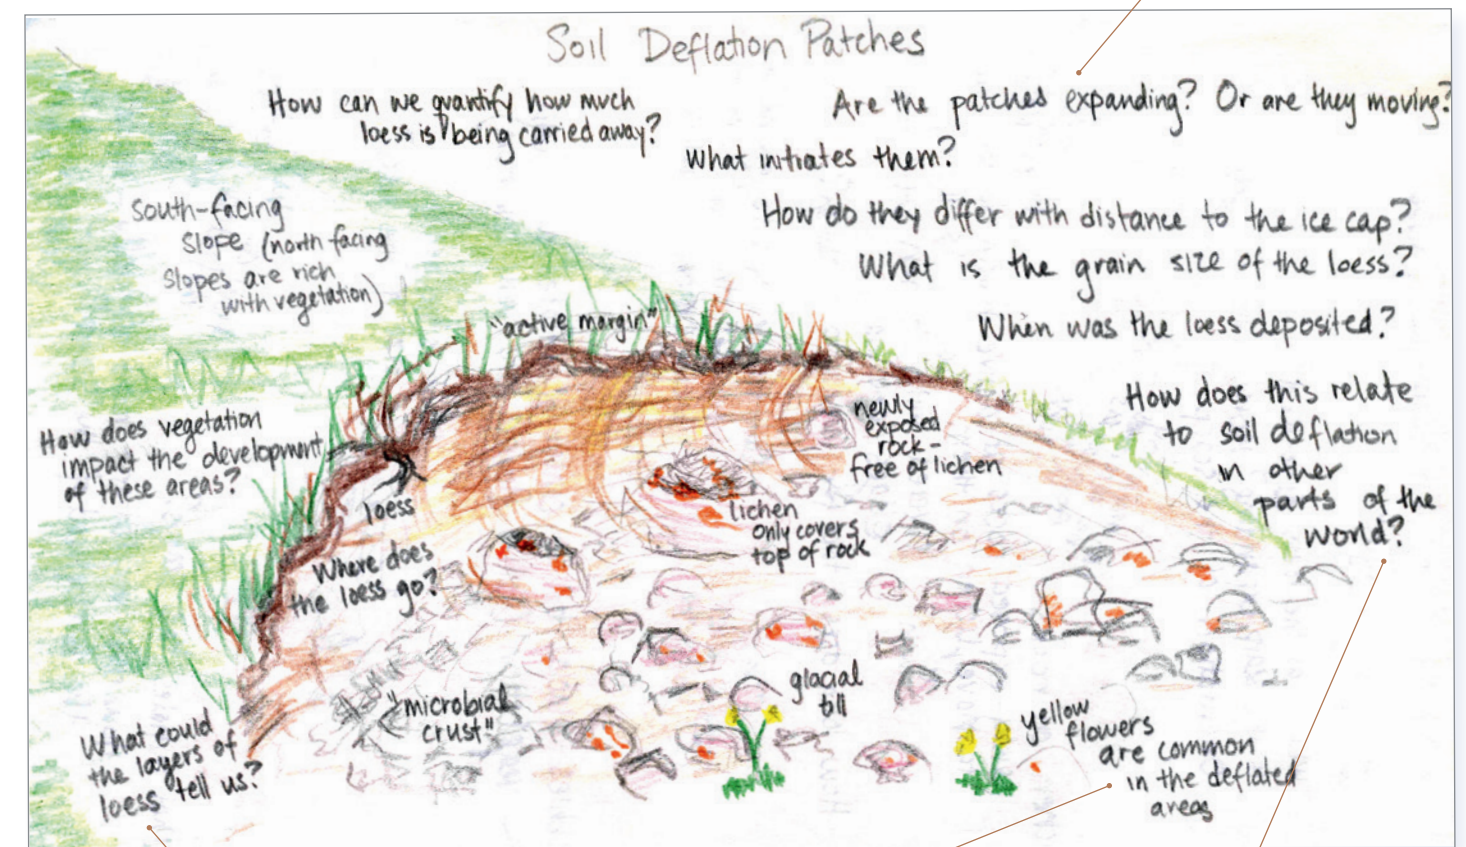 Soil Deflation Patches
How can we quantify how much
loess is being carried away?
Are the patches expanding? Or are they moving?
What initiates them?
How do they differ with distance to the ice cap?
What is the grain size of the loess?
When was the loess deposited?
How does this relate
to soil deflation
in other
parts of the
world?
south-facing
slope (north facing
slopes are rich
with vegetation)
"active margin"
How does vegetation
impact the development
of these areas?
loess
newly
exposed
rock-
free of lichen
lichen
only covers
top of rock
Where does
the loess go?
"microbial
crust"
glacial
till
yellow
flowers
are common
in the deflated
areas
What could
the layers of
loess tell us?